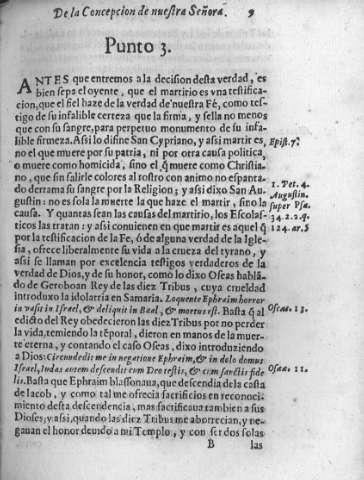 De la Concepcion de nuestra Señora. 9
Punto 3.
ANTES que entremos a la decision desta verdad, es
bien sepa el oyente, que el martirio es vna testifica-
cion, que el fiel haze de la verdad de nuestra Fé, como tes-
tigo de su infalible certeza que la firma, y sella no menos
que con su sangre, para perpetuo monumento de su infa-
lible firmeza. Assi lo difine San Cypriano, y assi martir es, Epist. 7.
no el que muere por su patria, ni por otra causa politica,
o muere como homicida, sino el q̃ muere como Christia-
no, que sin salirle colores al rostro con animo no espanta-
do derrama su sangre por la Religion; y assi dixo San Au- 1. Pet. 4.
gustin: no es sola la muerte la que haze el martir, sino la Augustin. super Psa.
causa. Y quantas sean las causas del martirio, los Escolas- 34. 2. 2. q.
ticos las tratan: y assi conuienen en que martir es aquel q̃ 124. ar. 5
por la testificacion de la Fe, ó de alguna verdad de la Igle-
sia, ofrece liberalmente su vida a la cueza del tyrano, y
assi se llaman por excelencia testigos verdaderos de la
verdad de Dios, y de su honor, como lo dixo Oseas hablã-
do de Geroboan Rey de las diez Tribus, cuya crueldad
introduxo la idolatria en Samaria. Loquente Ephraim horror
inuasit in Israel, & deliquit in Baal, & mortuus est. Basta q̃ al Oseas. 13.
edicto del Rey obedecieron las diez Tribus por no perder
la vida, temiendo la tẽporal, dieron en manos de la muer-
te eterna, y contando el caso Oseas, dixo introduziendo
a Dios: Circundedit me in negatione Ephraim, & in dolo domus
Israel, Iudas autem descendit cum Deo testis, & cum sanctis fide Oseas. 11.
lis. Basta que Ephraim blassonaua, que descendia de la casta
de Iacob, y como tal me ofrecia sacrificios en reconoci-
miento desta descendencia, mas sacrificaua tambien a sus
Dioses; y assi, quando las diez Tribus me aborrecian, y ne-
gauan el honor deuido a mi Templo, y con ser dos solas
B las